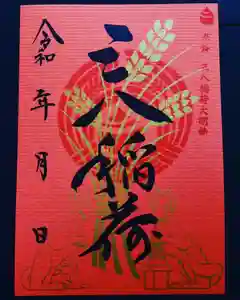 三八稲荷大明神
三八稲荷
令和 年 月 日